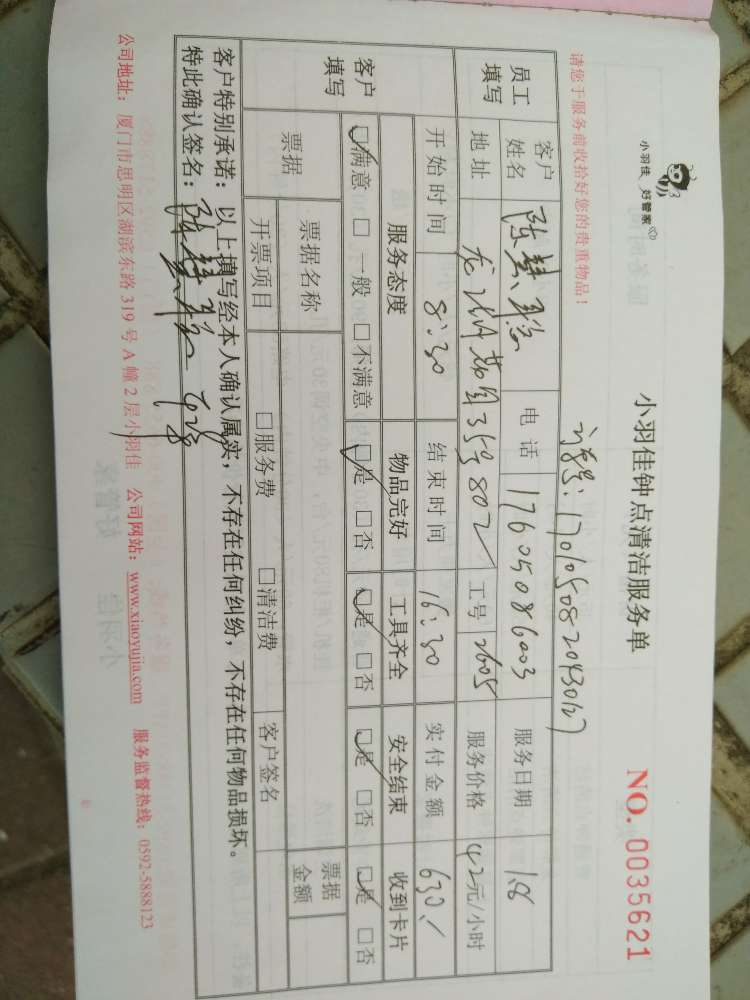 小羽佳 好管家
小羽佳钟点清洁服务单
NO. 0035621
请您于服务前收拾好您的贵重物品！
员工填写
客户姓名
电话 17605086003
服务日期 1.8
地址
工号 2605
服务价格 42元/小时
开始时间 8:30
结束时间 16:30
实付金额 630
客户填写
服务态度 物品完好 工具齐全 安全结束 收到卡片
□满意 □一般 □不满意 □是 □否 □是 □否 □是 □否 □是 □否
票据 票据名称 票据金额
开票项目 □服务费 □清洁费 客户签名
客户特别承诺：以上填写经本人确认属实，不存在任何纠纷，不存在任何物品损坏。
特此确认签名：
公司地址：厦门市思明区湖滨东路 319 号 A 幢 2 层小羽佳 公司网站：www.xiaoyujia.com 服务监督热线：0592-5888123